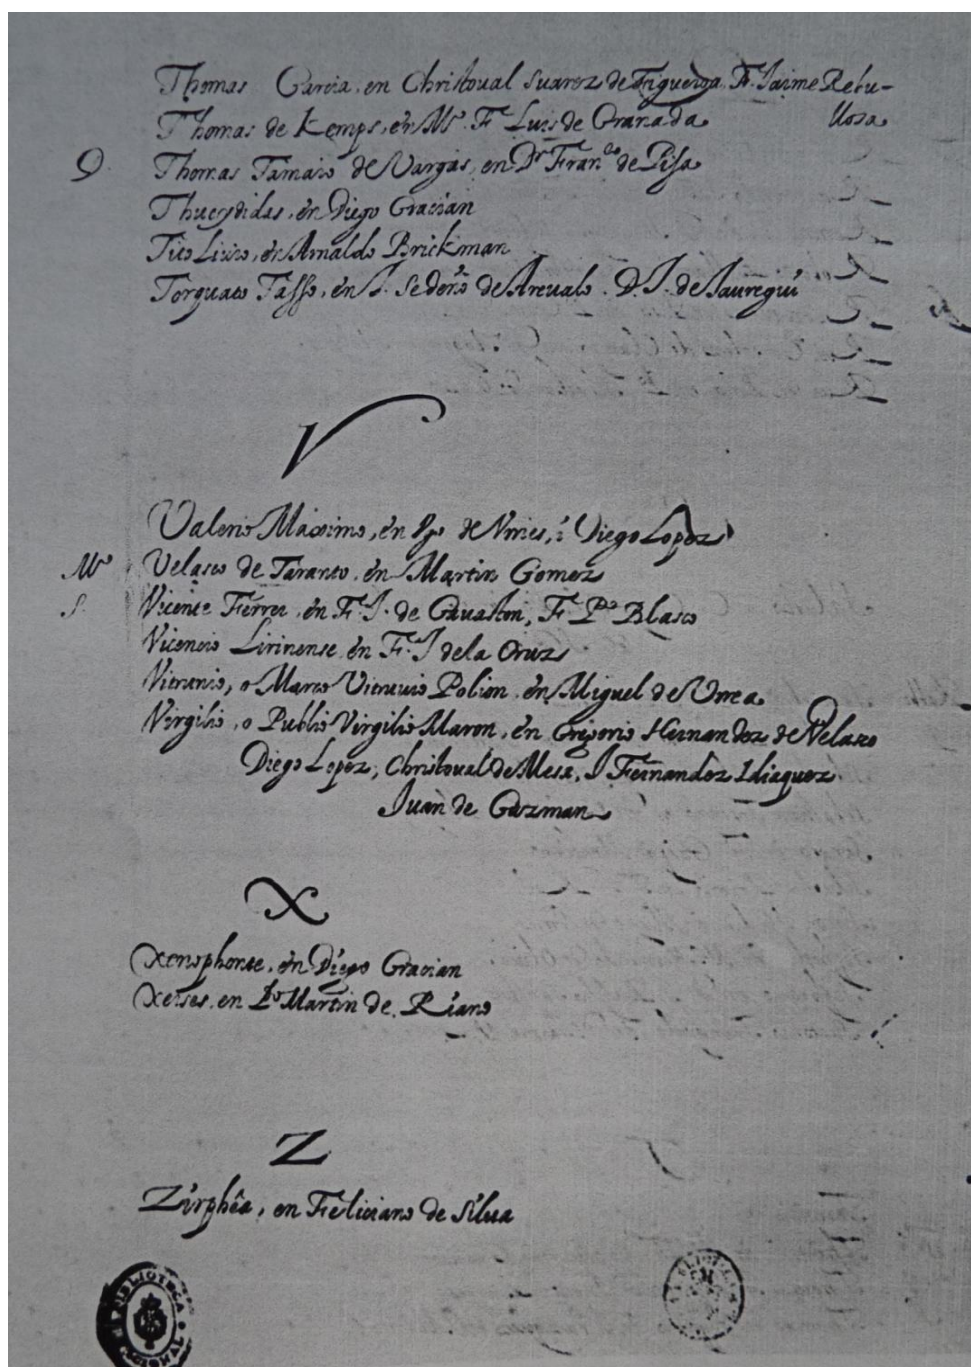 Thomas Garcia, en Christoual Suarez de Figueroa, F. Jaime Rebu-
Thomas de Kemps, én Mº. F Luis de Granada llosa
D. Thomas Tamaio de Vargas, en Dr Fran.co de Pisa
Thucydides, én Diego Gracian
Tito Liuio, én Arnaldo Brickman
Torquato Tasso, én J. Sedeño de Areualo. D. J. de Jauregui
V
Valerio Máximo, én de Vries, i Diego Lopez
Mº Velasco de Taranto, én Martin Gomez
S. Vicente Ferrer, én F. J. de Gauaston, F. Pº Blasco
Vicencio Lirinense, en F. J de la Cruz
Vitruuio, o Marco Vitruuio Polion, én Miguel de Vrrea
Virgilio, o Publio Virgilio Maron, én Grigorio Hernandez de Velasco
Diego Lopez, Christoual de Mesa, J Fernandez Idiaquez
Juan de Guzman
X
Xenophonte, én Diego Gracian
Xerses, en Martin de Riano
Z
Zirphêa, en Feliciano de Silua
BIBLIOTECA NACIONAL